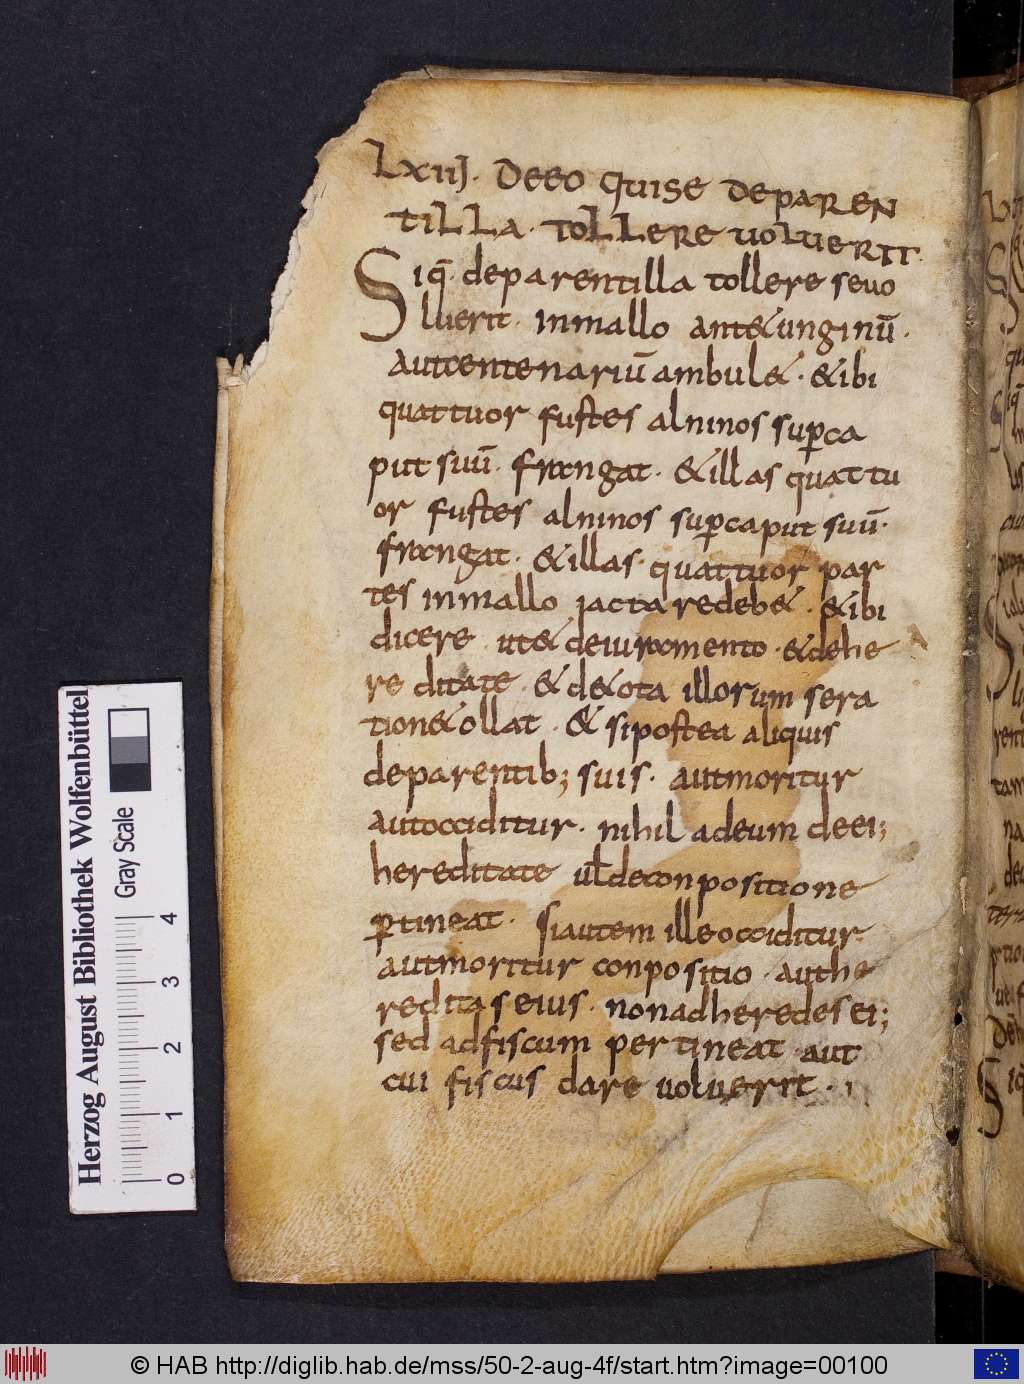 LXIIJ. DEEO QUISE DEPAREN
TILLA. TOLLERE UOLUERIT.
Siq̄. deparentilla tollere seuo
luerit. inmallo ante&unginū.
autcentenariū ambul&. &ibi
quattuor fustes alninos sup̲ca
put suū. frangat. &illas quattu
or fustes alninos sup̲caput suū.
frangat. &illas quattuor par
tes inmallo iactaredeb&. &ibi
dicere. ut&deiuramento. &dehe
reditate. &de&ota illorum sera
tion&ollat. & sipostea aliquis
deparentib; suis. autmoritur
autocciditur. nihil adeum deei;
hereditate ul̄deconpositione
p̲tineat. siautem illeocciditur.
autmoritur conpositio. authe
reditaseius. nonadheredesei;
sed adfiscum pertineat aut
cui fiscus dare uoluerit.
Herzog August Bibliothek Wolfenbüttel
Gray Scale
0 1 2 3 4
© HAB http://diglib.hab.de/mss/50-2-aug-4f/start.htm?image=00100